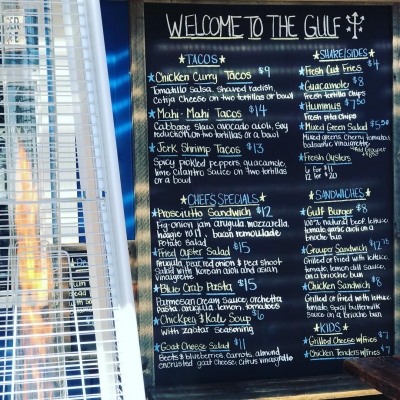 WELCOME TO THE GULF
TACOS
Chicken Curry Tacos $9
Tomatillo salsa, shaved radish,
Cotija Cheese on two tortillas or bowl
Mahi-Mahi Tacos $14
Cabbage slaw, avocado aioli, soy
reduction on two tortillas or a bowl
Jerk Shrimp Tacos $13
Spicy pickled peppers, guacamole,
lime cilantro Sauce on two tortillas
or a bowl
CHEF'S SPECIALS
Prosciutto Sandwich $12
Fig onion jam arugula, mozzarella,
bacon remoulade
Potato Salad
Fried Oyster Salad $15
Arugula, pear, red onion & pea shoot
Salad with Korean aioli and asian
vinaigrette
Blue Crab Pasta $15
Parmesan Cream Sauce, orchetta
pasta, arugula, lemon, tomatoes
Chickpea & Kale Soup $6
with zaatar Seasoning
Goat Cheese Salad $11
Beets & blueberries, carrots, almond
encrusted goat cheese, citrus vinaigrette
SHARE/SIDES
Fresh Cut Fries $4
Guacamole $8
Fresh tortilla chips
Hummus $7.50
Fresh pita chips
Mixed Green Salad $5.50
Mixed greens, Cherry tomatoes,
balsamic vinaigrette
Fresh Oysters
6 for $11
12 for $20
SANDWICHES
Gulf Burger $8
100% natural beef, lettuce,
tomato, garlic aioli on a
brioche bun
Grouper Sandwich $12.75
Grilled or fried with lettuce,
tomato, lemon dill sauce,
on a brioche bun
Chicken Sandwich $8
Grilled or fried with lettuce,
tomato, spicy buttermilk
Sauce on a brioche bun
KIDS
Grilled Cheese w/Fries $7
Chicken Tenders w/Fries $7